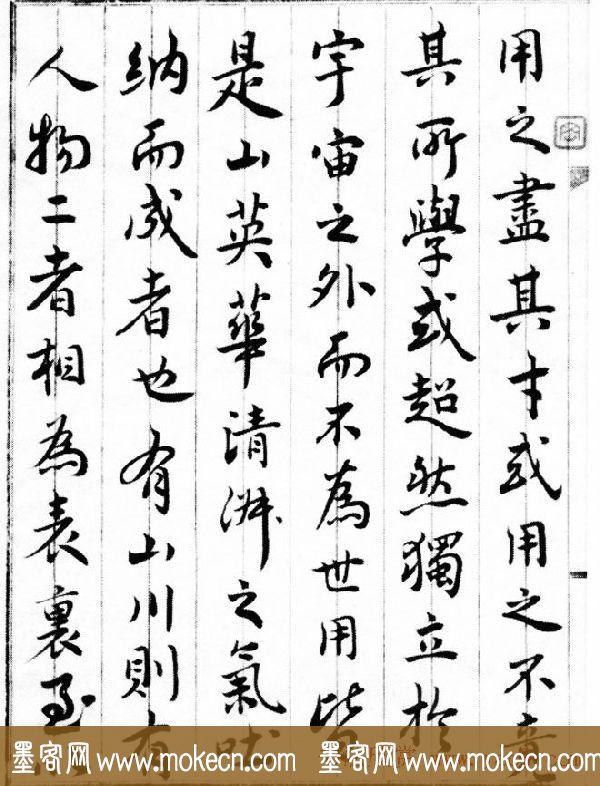 用之盡其才或用之不竟
其所學或超然獨立於
宇宙之外而不為世用皆
是山英華清淑之氣吐
納而成者也有山川則有
人物二者相為表裏
墨客网 www.mokecn.com 墨客网 www.mokecn.com